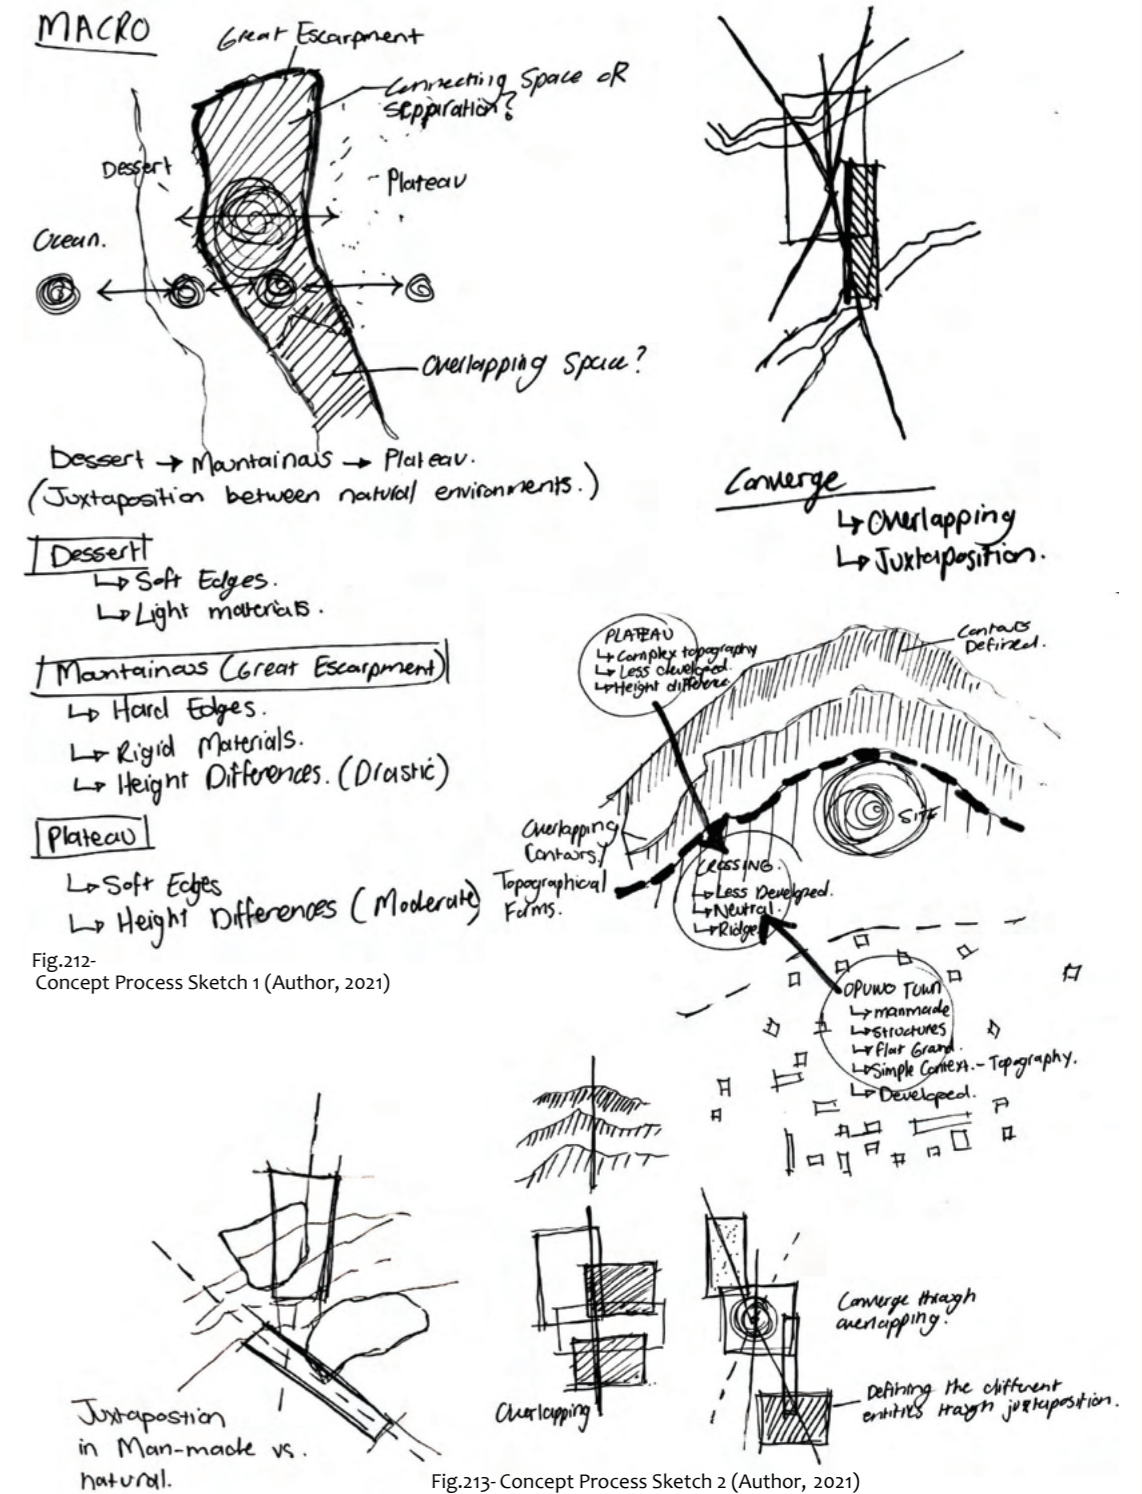 MACRO
Great Escarpment
Connecting Space OR
sepparation?
Dessert
Plateau
Ocean.
Overlapping Space?
Dessert → Mountainous → Plateau.
(Juxtaposition between natural environments.)
Dessert
↳ Soft Edges.
↳ Light materials.
Mountainous (Great Escarpment)
↳ Hard Edges.
↳ Rigid Materials.
↳ Height Differences. (Drastic)
Plateau
↳ Soft Edges
↳ Height Differences (Moderate)
Fig.212-
Concept Process Sketch 1 (Author, 2021)
Converge
↳ Overlapping
↳ Juxtaposition.
PLATEAU
↳ Complex topography
↳ Less developed.
↳ Height difference.
Contours
Defined.
SITE
Overlapping
Contours/
Topographical
Forms.
CROSSING.
↳ Less Developed.
↳ Neutral.
↳ Ridge
OPUWO TOWN
↳ manmade
↳ structures
↳ flat Ground.
↳ Simple Context. - Topography.
↳ Developed.
Juxtapostion
in Man-made vs.
natural.
Overlapping
Converge through
overlapping.
Defining the different
entities through juxtaposition.
Fig.213- Concept Process Sketch 2 (Author, 2021)